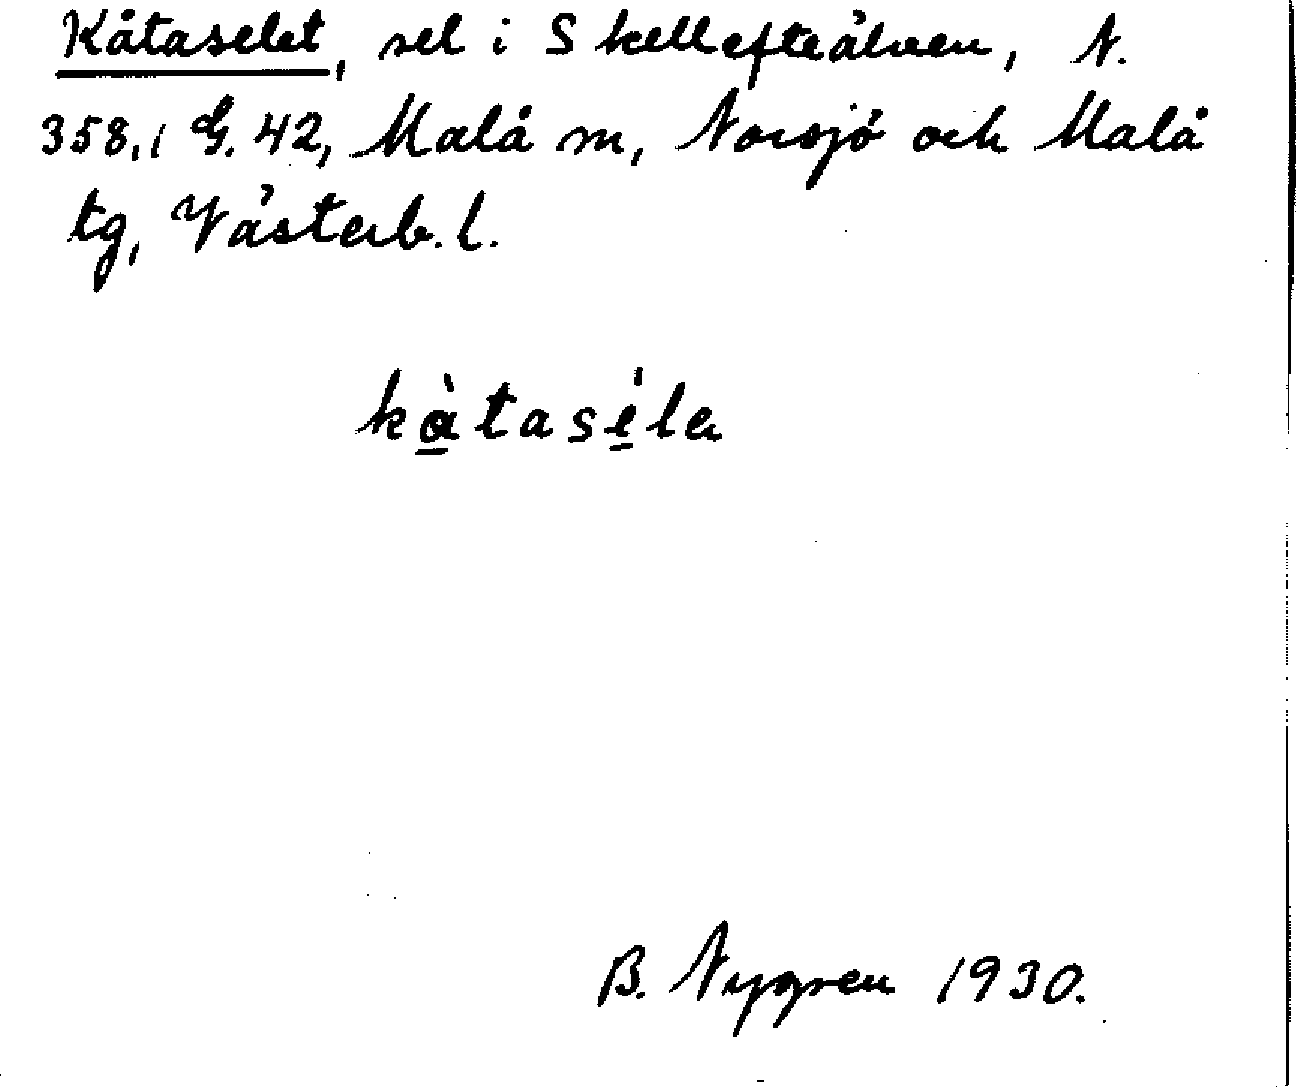 Kåtaselet, sel i Skellefteälven, N.
358, i G. 42, Malå m, Norsjö och Malå
tg, Västerb. l.
kàtasélen
B. Nygren 1930.